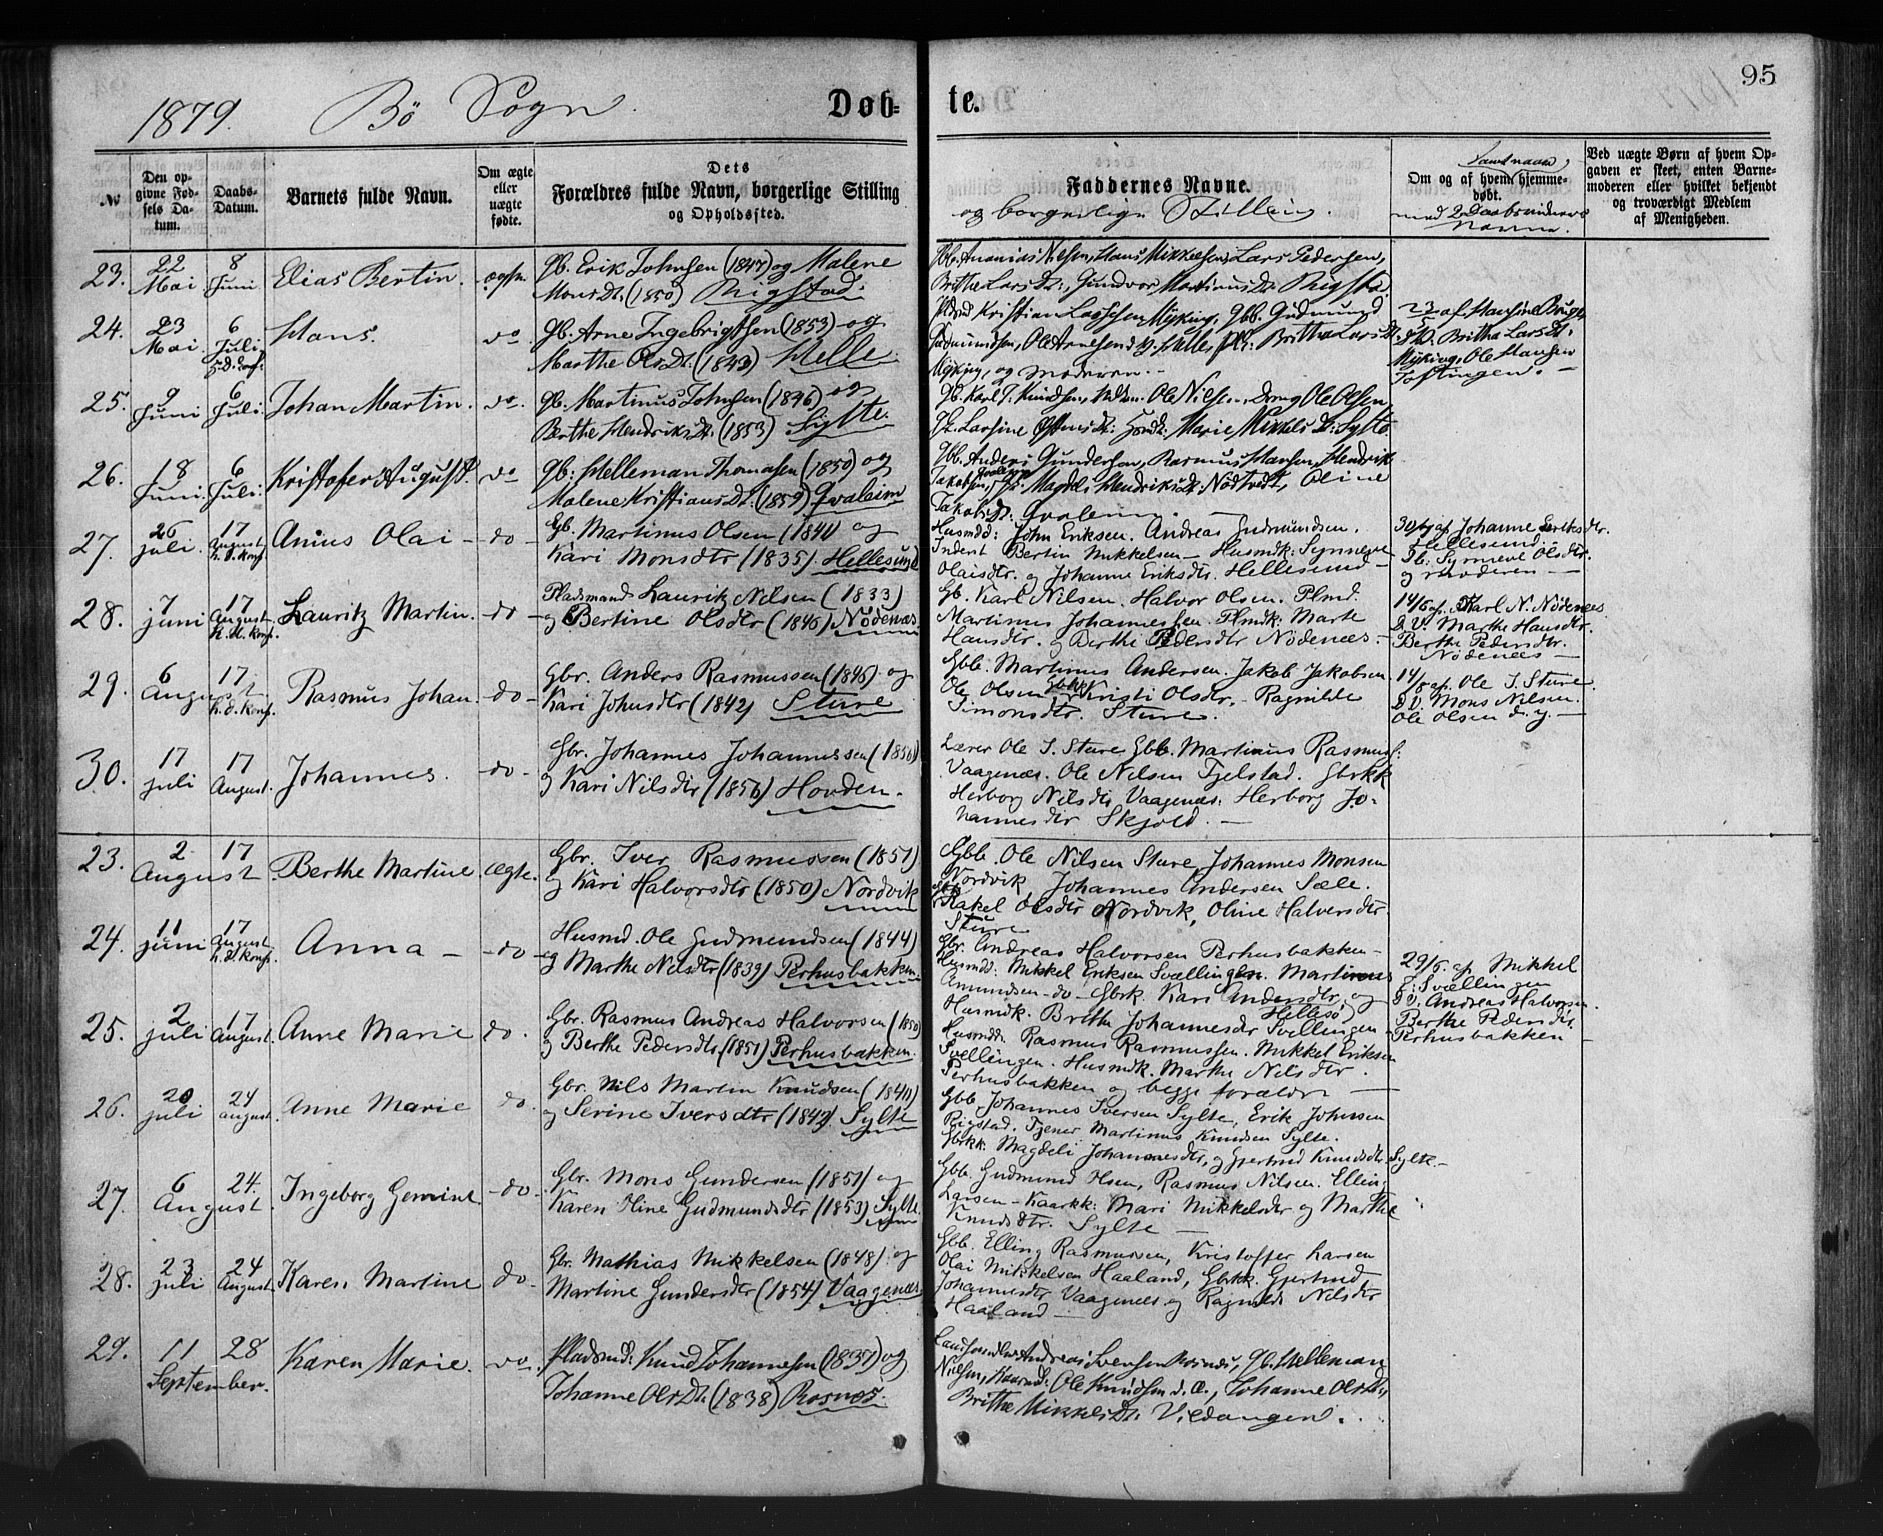 95
1879. Bö Sogn. Døb= te.
№
Den op-
givne Fød-
sels Da-
tum.
Daabs-
Datum.
Barnets fulde Navn.
Om ægte
eller
uægte
fødte.
Dets
Forældres fulde Navn, borgerlige Stilling
og Opholdssted.
Faddernes Navne.
og borgerlige Stilling.
Samt naar,
Om og af hvem hjemme-
døbt.
med 2 Daabsvidners
Navne.
Ved uægte Børn af hvem Op-
gaven er skeet, enten Barne-
moderen eller hvilket bekjendt
og troværdigt Medlem
af Menigheden.
23. 22 Mai 8 Juni Elias Bertin. ægte. Gb. Erik Johnsen (1847) og Malene
Mons Dt. (1850) Rigstad.
Gbb. Ananias Nilsen, Hans Mikkelsen, Lars Pedersen,
Brithe Lars Dt., Gundvor Martinus Dt. Rigsta.
24. 23 Mai 6 Juli h. d. conf. Hans. do. Gb. Arne Ingebrigtsen (1853) og
Marthe Ols Dt. (1843) Helle.
Pldsmd Kristian Lassesen Myking, Gbb. Gudmund
Gudmundsen, Ole Arnesen d. y. Helle, Britha Lars Dt.
Myking, og moderen. -
23/5 af Hansine
Britha Lars Dt.
Myking, Ole Hansen
Toftingen. -
25. 9 Juni 6 Juli Johan Martin. do. Gb. Martinus Johnsen (1846) og
Berthe Hendriks Dt. (1853) Sylte.
Gb. Karl J. Knudsen, Ole Nilsen, Dreng Ole Olsen,
Larsine Marie Mikkels Dt. Sylte
26. 18 Juni 6 Juli Kristofer August. do Gb. Helleman Thomasen (1850) og
Malene Kristians Dt. (1859) Qvaleim
Gbb. Anders Gundersen, Rasmus Hansen, Hendrik
Jakobsen, Magdeli Hendriks Dt. Nötvedt, Oline
Jakobs Dt. Qvaleim. -
27. 26 juli 17 August h. d. konf. Anius Olai - do - Gb. Martinus Olsen (1841) og
Kari Monsdtr (1835). Hellesund
Husmd: John Eriksen. Andreas Gudmundsen.
Inderst Bertin Mikkelsen - Husmdk: Synneve
Olaisdtr. og Johanne Eriksdtr. Hellesund -
30/7 af Johanne Eriksdtr.
Hellesund.
Synneve Olsdtr.
og moderen -
28. 7 juni 17 August h. d. konf. Lauritz Martin. do - Pladsmand Lauritz Nilsen (1833)
og Bertine Olsdtr (1845) Nödenæs
Gb. Karl Nilsen. Halvor Olsen. Plmd.
Martinus Johannessen. Plmdk: Marte
Hansdtr. og Berthe Pedersdtr Nödenæs -
14/6 af Karl N. Nödenæs
D. V. Marthe Hansdtr.
Berthe Pedersdtr.
Nödenæs -
29. 6 August 17 h. d. konf. Rasmus Johan. do - Gbr. Anders Rasmussen (1845) og
Kari Johnsdtr (1842) Sture
Gbb. Martinus Andersen. Jakob Jakobsen
Ole Olsen Gbkk Kristi Olsdtr, - Ragnilde
Simonsdtr. Sture.
14/8 af. Ole I. Sture
D. V. Mons Nilsen.
Ole Olsen d. y. -
30. 17 juli 17 August. Johannes. do - Gbr. Johannes Johannessen (1850)
og Kari Nilsdtr (1856) Hovden.
Lærer Ole I. Sture Gbb. Martinus Rasmuss:
Vaagenæs. Ole Nilsen Tjelstad. Gbrkk
Herborg Nilsdtr Vaagenæs. Herborg Jo-
hannesdtr Skjold. -
23. 2 August 17 Berthe Martine ægte. Gbr. Iver Rasmussen (1851)
og Kari Halvorsdtr (1850) Nordvik
Gbb. Ole Nilsen Sture Johannes Monsen
Nordvik, Johannes Andersen Sæle.
Rakel Olsdtr Nordvik, Oline Halversdtr
Sture
24. 11 juni 17 August h. d. konf. Anna - do - Husmd. Ole Gudmundsen (1844)
og Marthe Nilsdtr (1839) Perhusbakken
Gbr. Andreas Halvorsen Perhusbakken -
Husmdd: Mikkel Eriksen Svællingen. Martinus
Amundsen - do - Gbrk. Kari Andersdtr og
Hellesö
Husmdk. Brithe Johannesdtr Svellingen
29/6. af Mikkel
E. Svællingen
D V. Andreas Halvorsen.
Berthe Pedersdtr.
Perhusbakken
25. 2 juli 17 August. Anne Marie do. Gbr. Rasmus Andreas Halvorsen (1850)
og Berthe Pedersdtr (1851) Perhusbakken.
Husmdd. Rasmus Rasmussen. Mikkel Eriksen
Svellingen. Husmdk. Marthe Nilsdtr.
Perhusbakken og begge forældre -
26. 20 juli 24 august. Anne Marie do. Gbr. Nils Martin Knudsen (1840)
og Serine Iversdtr (1842) Sylte
Gbb Johannes Iversen Sylte, Erik Johnsen
Rigstad. Tjener Martinus Knudsen Sylte.
Gbrkk. Magdeli Johannesdtr, og Gjertrud Knudsdtr Sylte. -
27. 6 August 24. Ingeborg Gemine - do - Gbr. Mons Gundersen (1851) og
Karen Oline Gudmundsdtr (1853) Sylte
Gbb. Gudmund Rasmus Nilsen. Elling
Larsen - Kaarkk: Mari Mikkelsdtr og Marthe
Knudsdtr. Sylte -
28. 23 juli 24 August. Karen Martine do - Gbr. Mathias Mikkelsen (1848) og
Martine Gundersdtr (1854) Vaagenæs
Gbb. Elling Rasmussen, Kristoffer Larsen
Olai Mikkelsen Haaland, Gbrkk. Gjertrud
Johannesdtr Vaagenæs og Ragnilde Nilsdtr
Haaland -
29. 11 September. 28 Karen Marie. do., Pladsmd: Knud Johannesen (1837) og
Johanne Ols Dt. (1838) Rosnes.
Landhandler Andreas Svensen Rosnes, Gb. Helleman
Nielsen, Ole Knudsen d. æ., Johanne Ols Dt.,
Brithe Mikkels Dt. Vildangen.